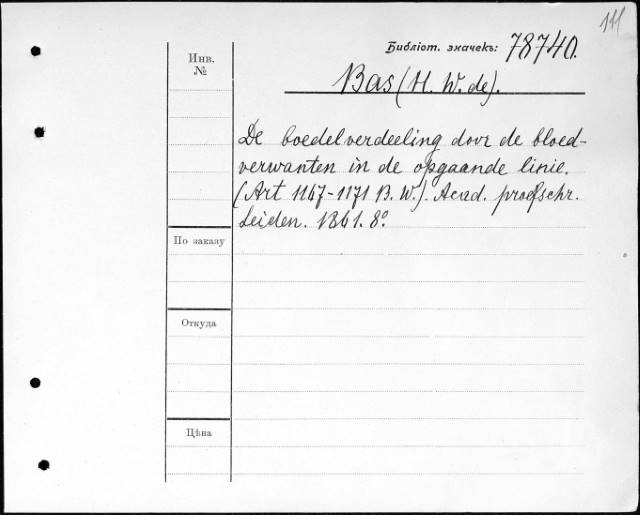 111
Библіот. значекъ: 78740.
Инв. №
Bas (H. W. de).
De boedelverdeeling door de bloed-
verwanten in de opgaande linie.
(Art 1167-1171 B. W.). Acad. proefschr.
Leiden. 1861. 8º
По заказу
Откуда
Цѣна